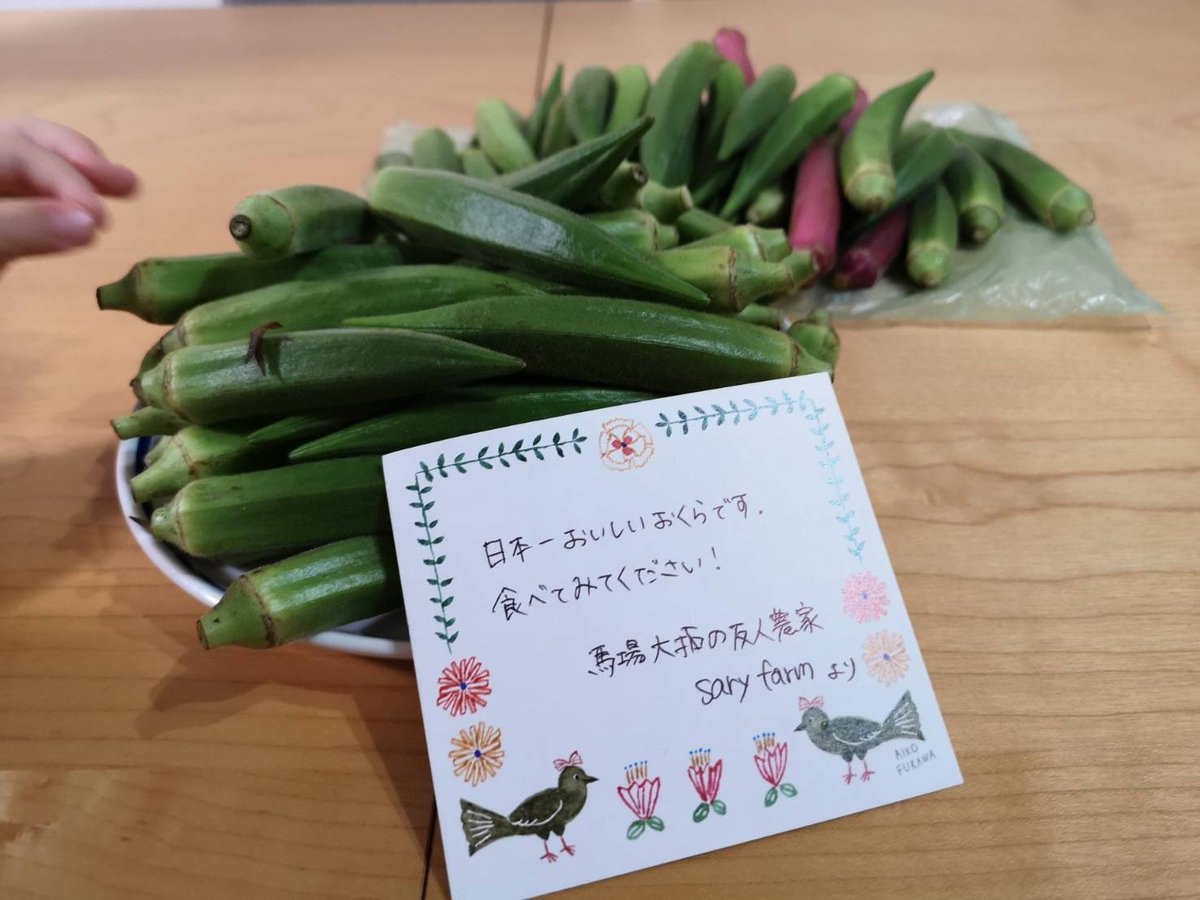 日本一おいしいおくらです.
食べてみてください!
馬場大捕の友人農家
sary farm より
AIKO
FUKAWA